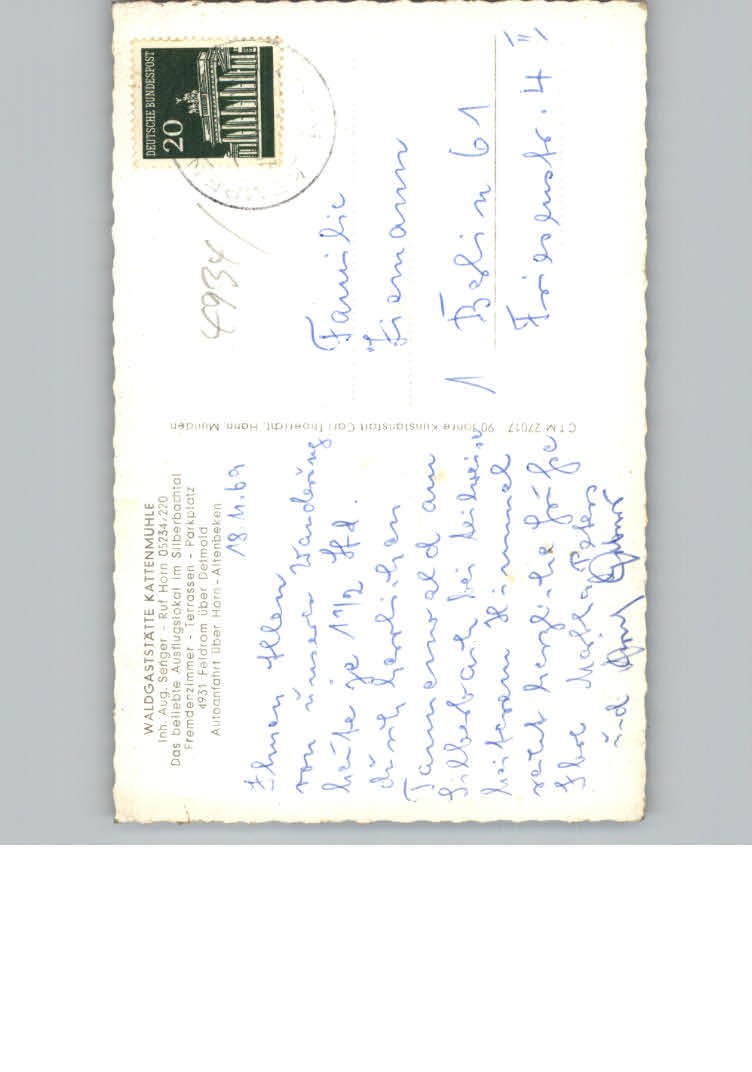 WALDGASTSTÄTTE KATTENMÜHLE
Inh. Aug. Senger - Ruf Horn 05234/220
Das beliebte Ausflugslokal im Silberbachtal
Fremdenzimmer - Terrassen - Parkplatz
4931 Feldrom über Detmold
Autoanfahrt über Horn - Altenbeken
18.11.69
Ihnen Allen
von unserer Wanderung
heute je 1 1/2 Std.
durch herrlichen
Tannenwald am
Silberbach bei teilweise
heiterem Himmel
recht herzliche Grüße
Ihre Martha Peters
und
CTM 27017 90 Jahre Kunstanstalt Carl Thoericht, Hann. Münden
DEUTSCHE BUNDESPOST
20
4934/
Familie
Ziemann
1 Berlin 61
Friesenstr. 4 II